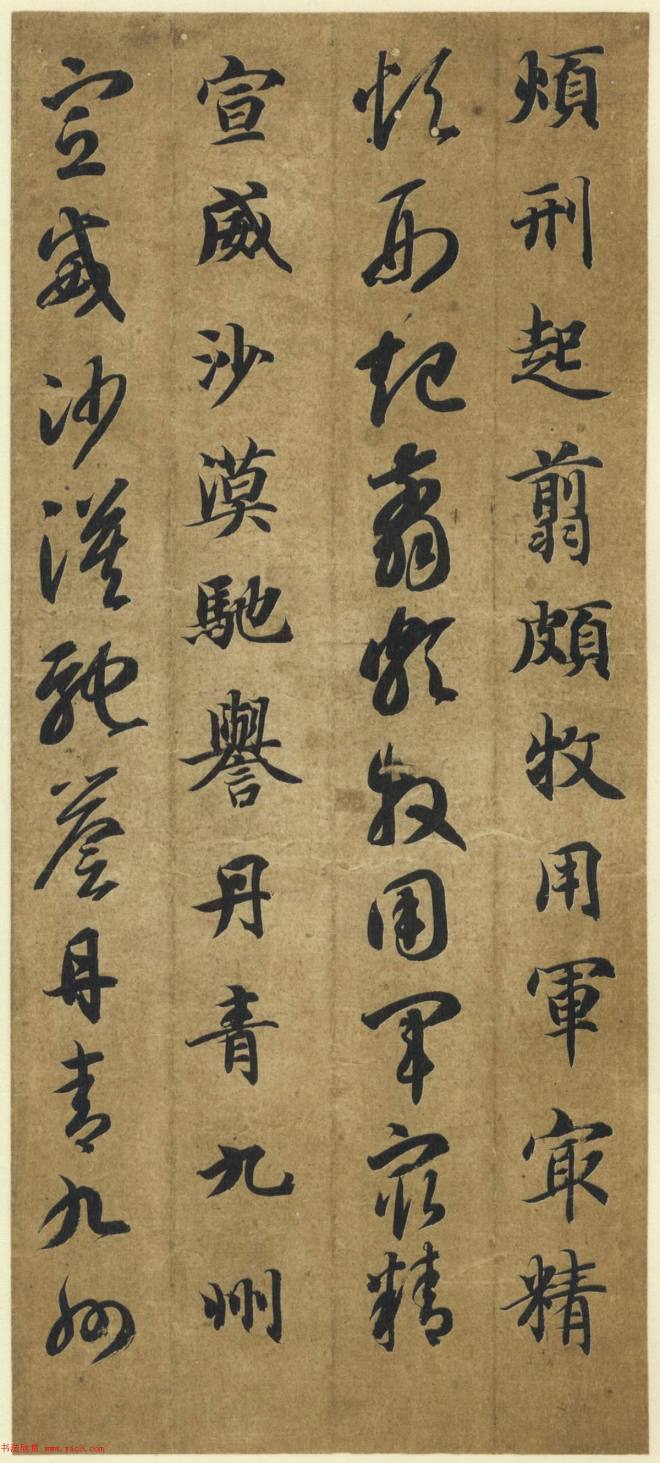 煩刑起翦頗牧用軍㝡精
煩刑起翦頗牧用軍㝡精
宣威沙漠馳譽丹青九州
宣威沙漠馳譽丹青九州
书法欣赏 www.yac8.com